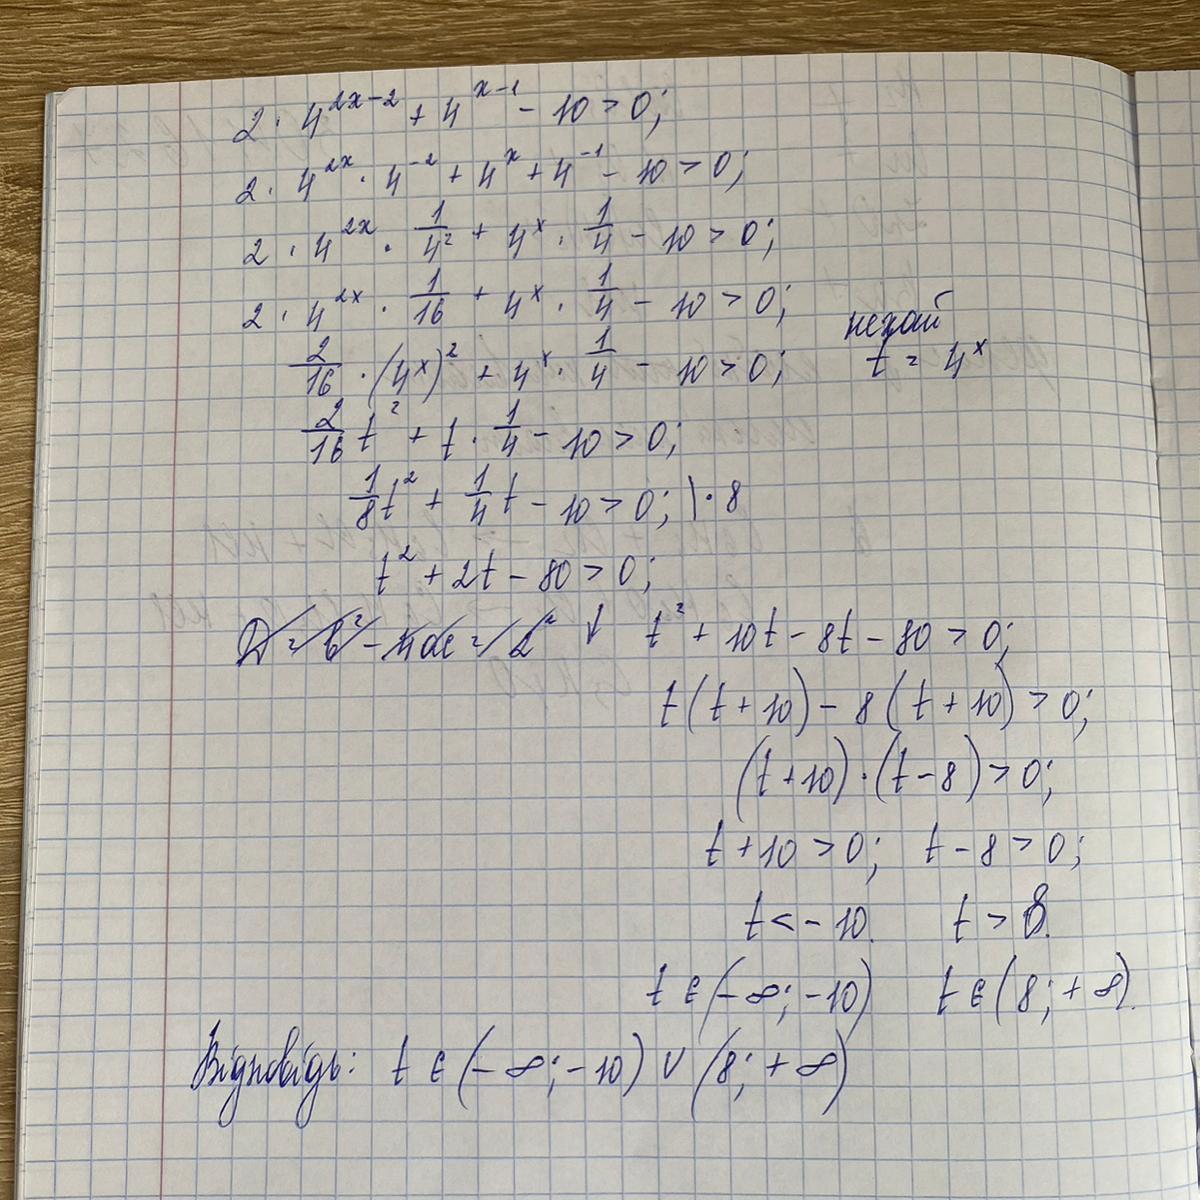 2 · 4^{2x-2} + 4^{x-1} - 10 > 0;
2 · 4^{2x} · 4^{-2} + 4^x + 4^{-1} - 10 > 0;
2 · 4^{2x} · 1/4² + 4^x · 1/4 - 10 > 0;
2 · 4^{2x} · 1/16 + 4^x · 1/4 - 10 > 0;
нехай
2/16 · (4^x)² + 4^x · 1/4 - 10 > 0; t = 4^x
2/16 t² + t · 1/4 - 10 > 0;
1/8 t² + 1/4 t - 10 > 0; | · 8
t² + 2t - 80 > 0;
D = b² - 4ac = 2² ↓ t² + 10t - 8t - 80 > 0;
t(t + 10) - 8(t + 10) > 0;
(t + 10) · (t - 8) > 0;
t + 10 > 0; t - 8 > 0;
t < - 10. t > 8.
t ∈ (- ∞; -10) t ∈ (8; + ∞).
Відповідь: t ∈ (- ∞; -10) ∪ (8; + ∞)